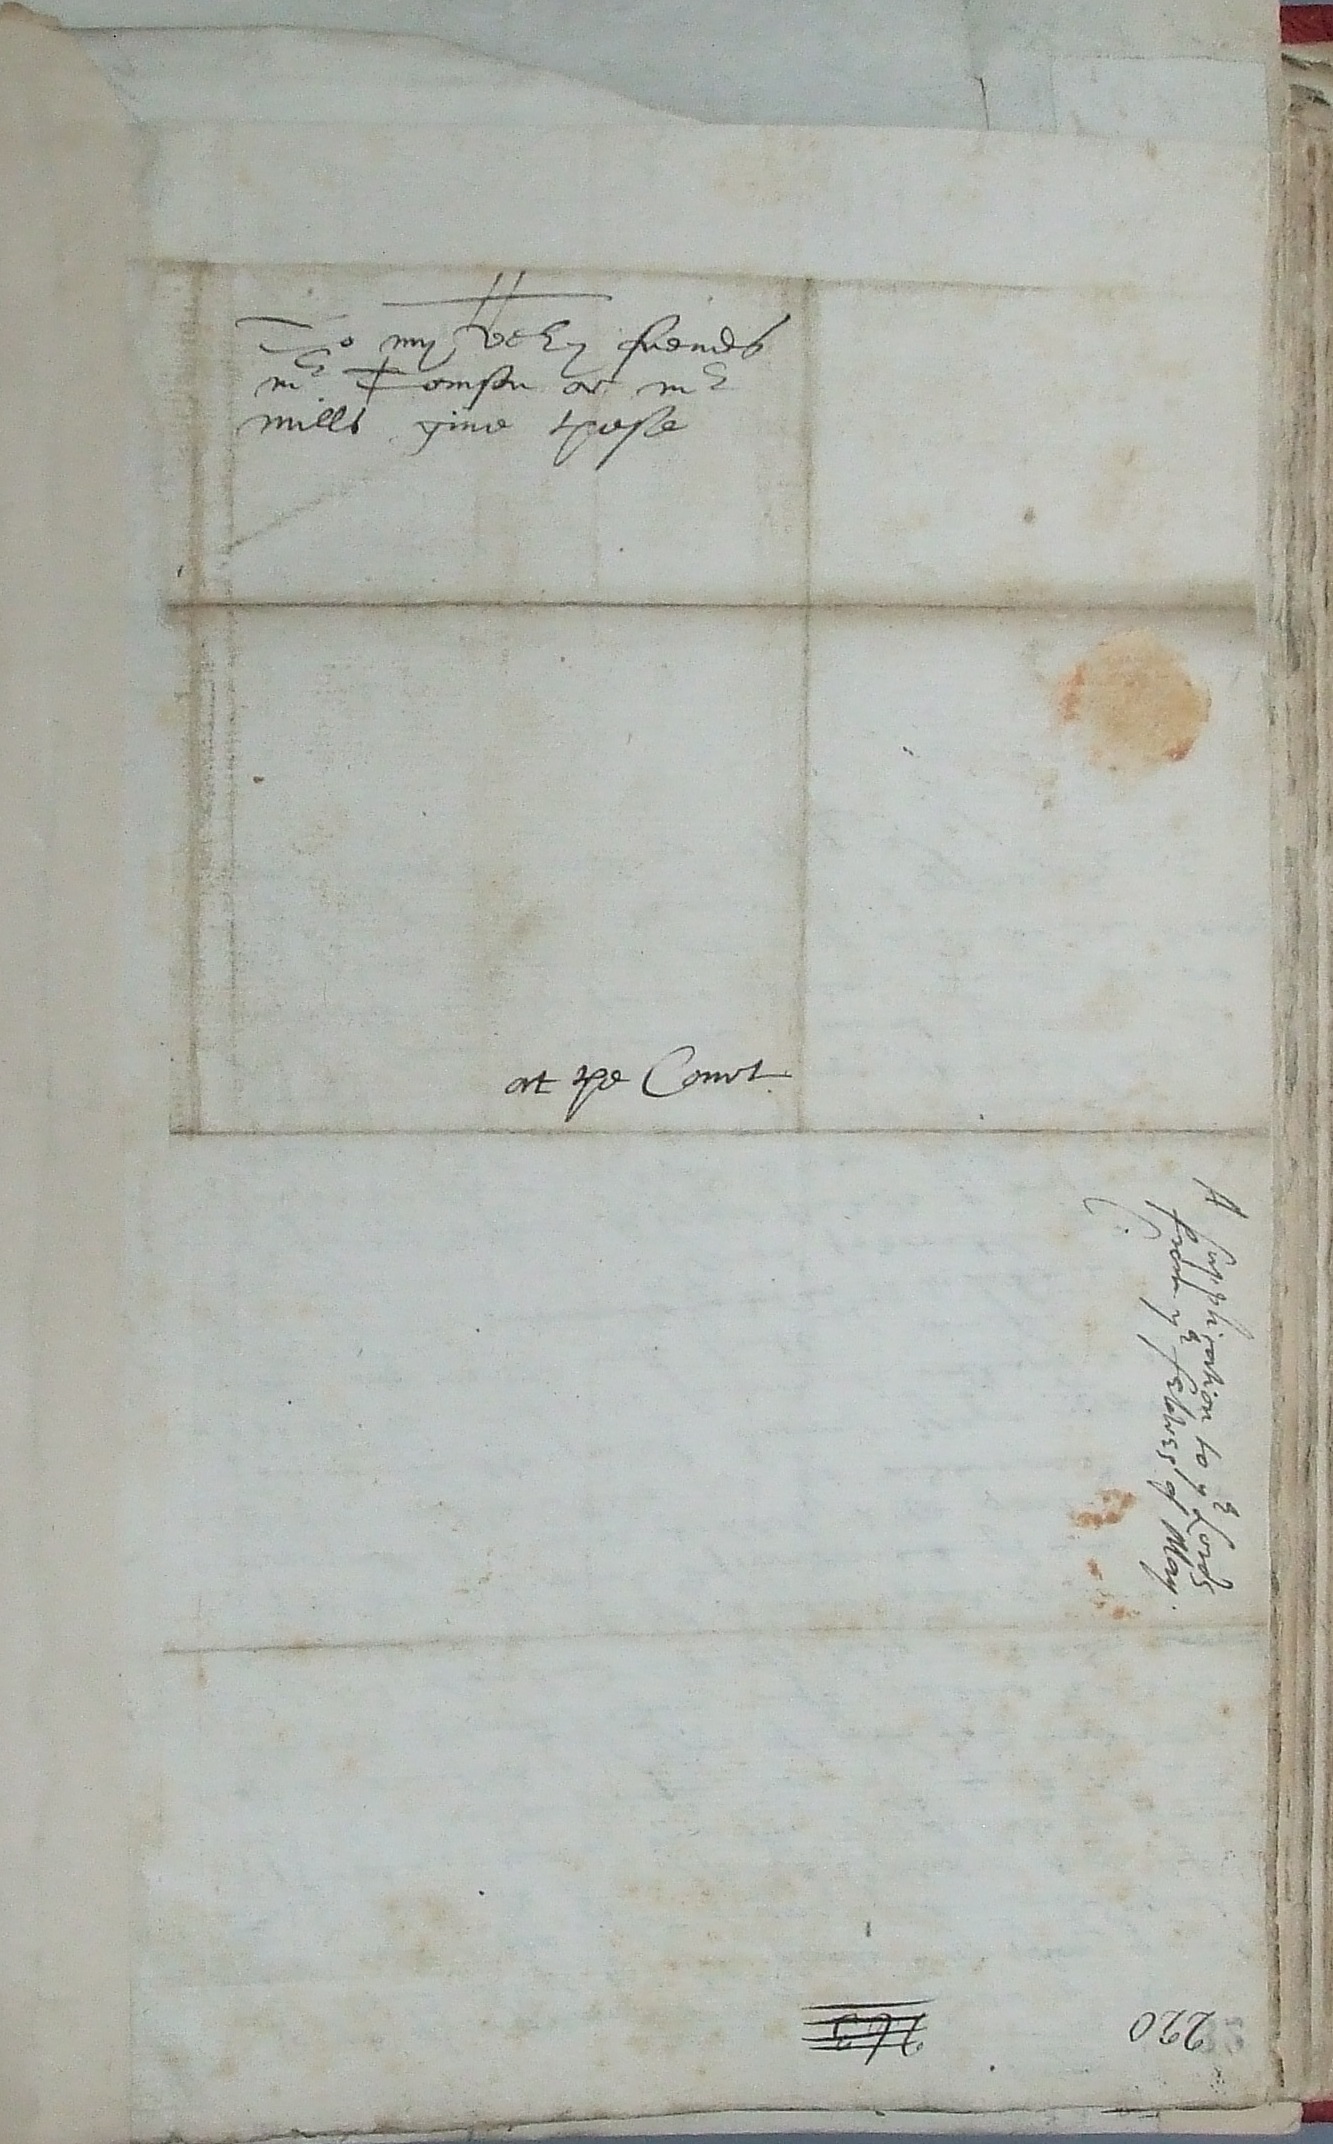 To my Very friends
mr Tomson or mr
mills give these
at the Court
A supplication to ye Lords
from ye fellowes of May.
220